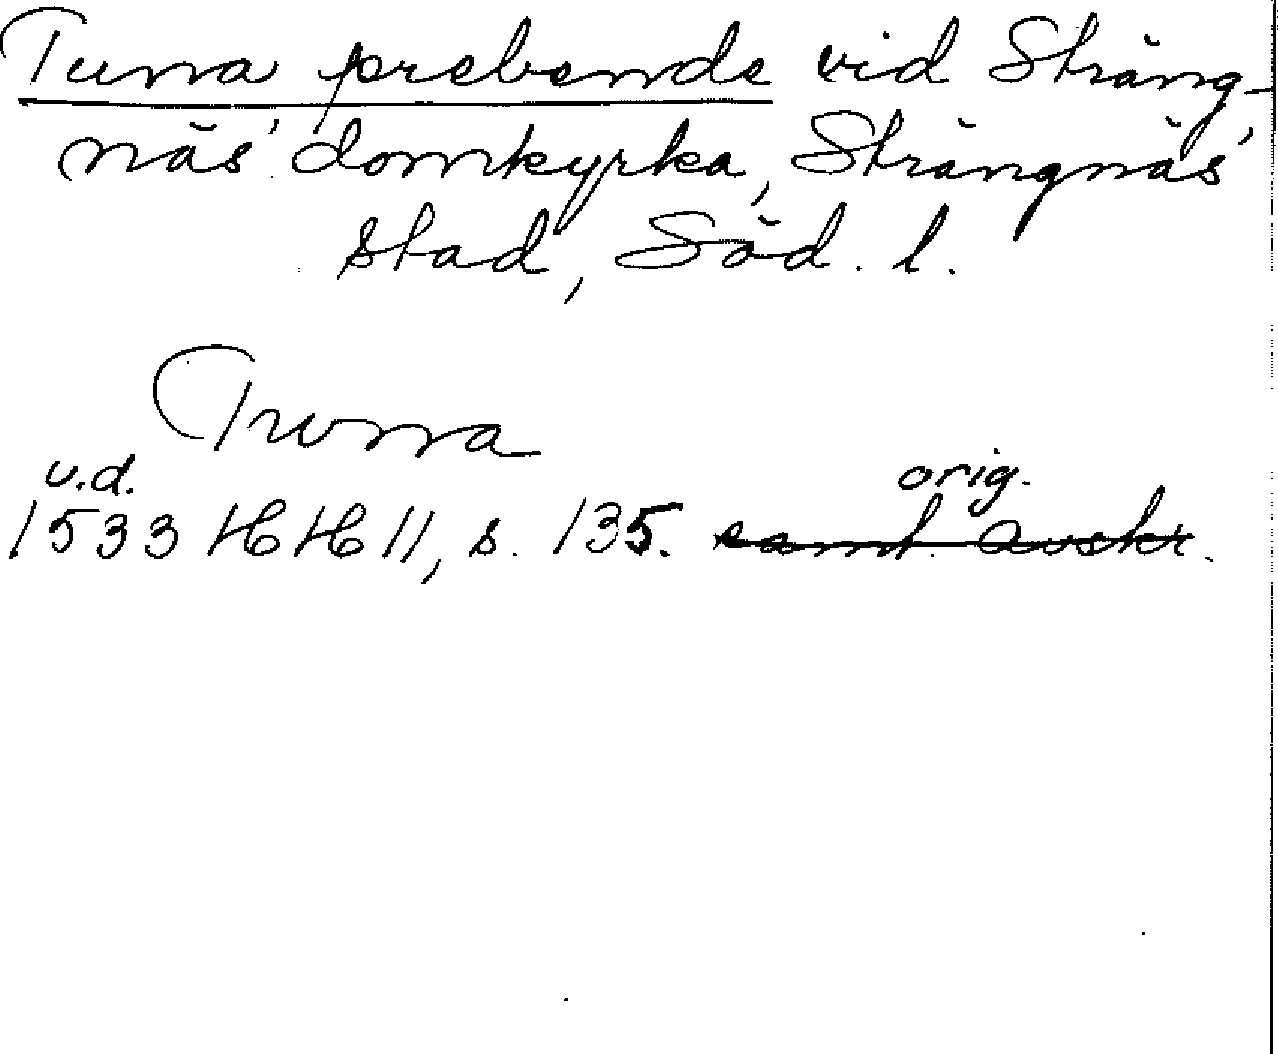 Tuna prebende vid Sträng-
näs' domkyrka, Strängnäs'
stad, Söd. l.
Twna
u.d. orig.
1533 HH 11, s. 135. samt. avskr.